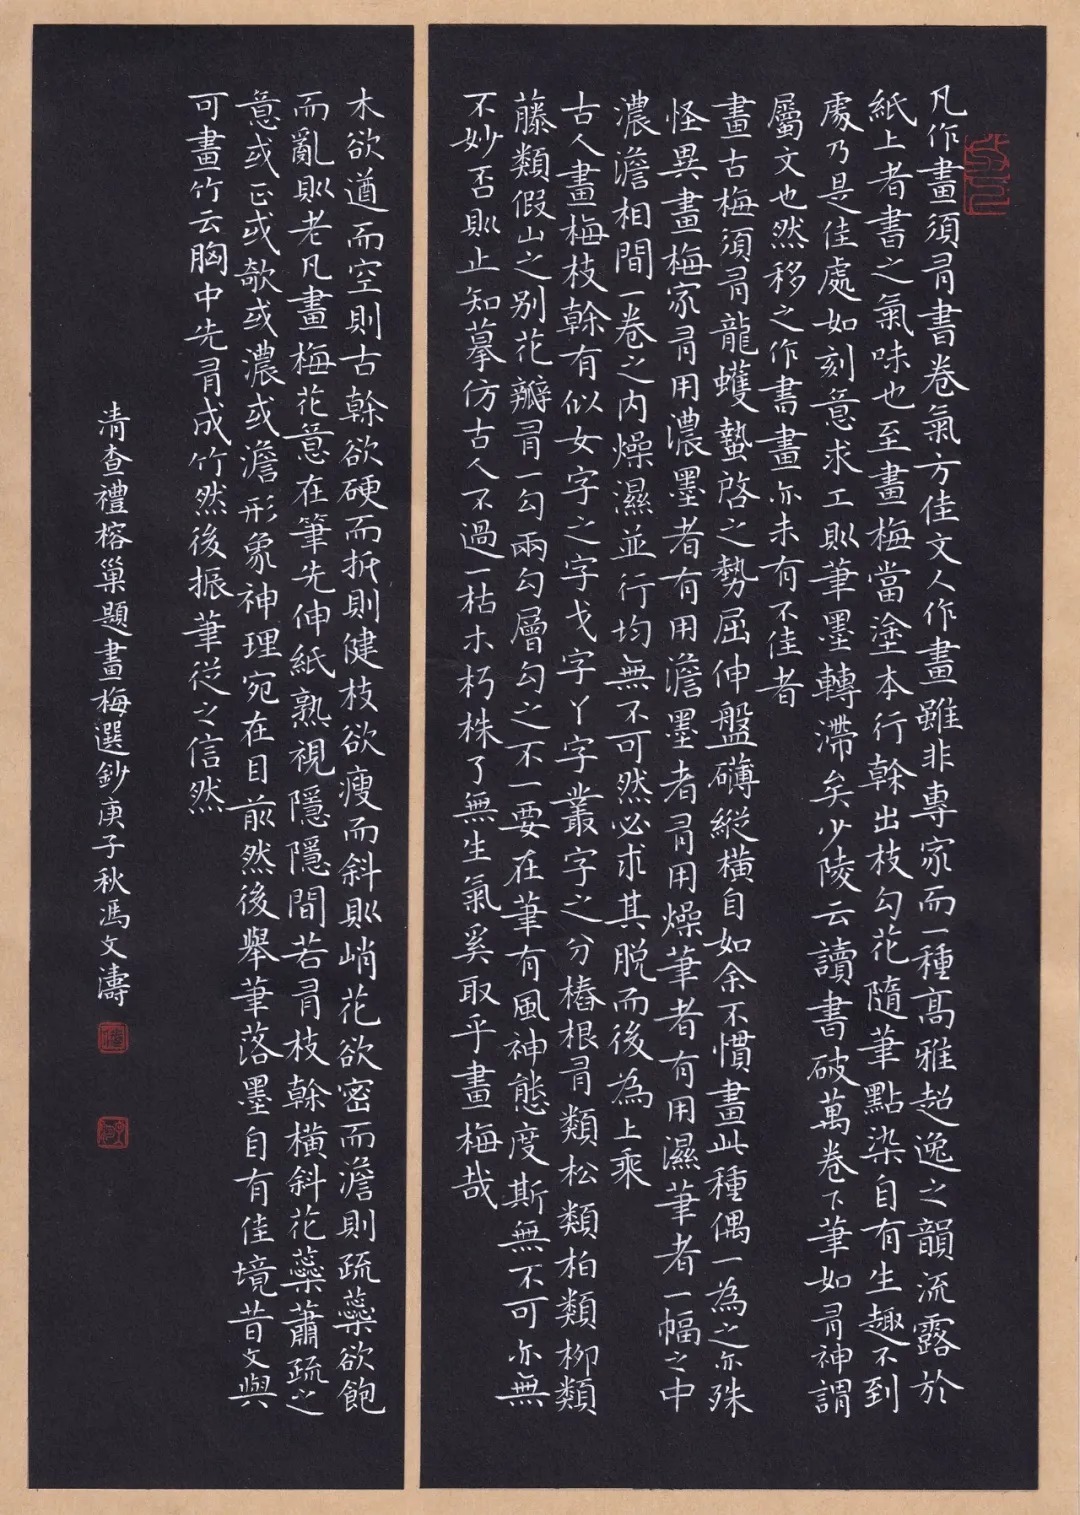 凡作畫須有書卷氣方佳文人作畫雖非專家而一種高雅超逸之韻流露於
紙上者書之氣味也至畫梅當塗本行榦出枝勾花隨筆點染自有生趣不到
處乃是佳處如刻意求工則筆墨轉滯矣少陵云讀書破萬卷下筆如有神謂
屬文也然移之作書畫亦未有不佳者
畫古梅須有龍蠖蟄啓之勢屈伸盤礴縱橫自如余不慣畫此種偶一為之亦殊
怪異畫梅家有用濃墨者有用澹墨者有用燥筆者有用濕筆者一幅之中
濃澹相間一卷之内燥濕並行均無不可然必求其脱而後為上乘
古人畫梅枝榦有似女字之字戈字丫字叢字之分樁根有類松類柏類柳類
藤類假山之别花瓣有一勾兩勾層勾之不一要在筆有風神態度斯無不可亦無
不妙否則止知摹仿古人不過一枯木朽株了無生氣奚取乎畫梅哉
木欲遒而空則古榦欲硬而折則健枝欲瘦而斜則峭花欲密而澹則疏蘂欲飽
而亂則老凡畫梅花意在筆先伸紙熟視隱隱間若有枝榦橫斜花蘂蕭疏之
意或正或欹或濃或澹形象神理宛在目前然後舉筆落墨自有佳境昔文與
可畫竹云胸中先有成竹然後振筆從之信然
清查禮榕巢題畫梅選鈔庚子秋馮文濤